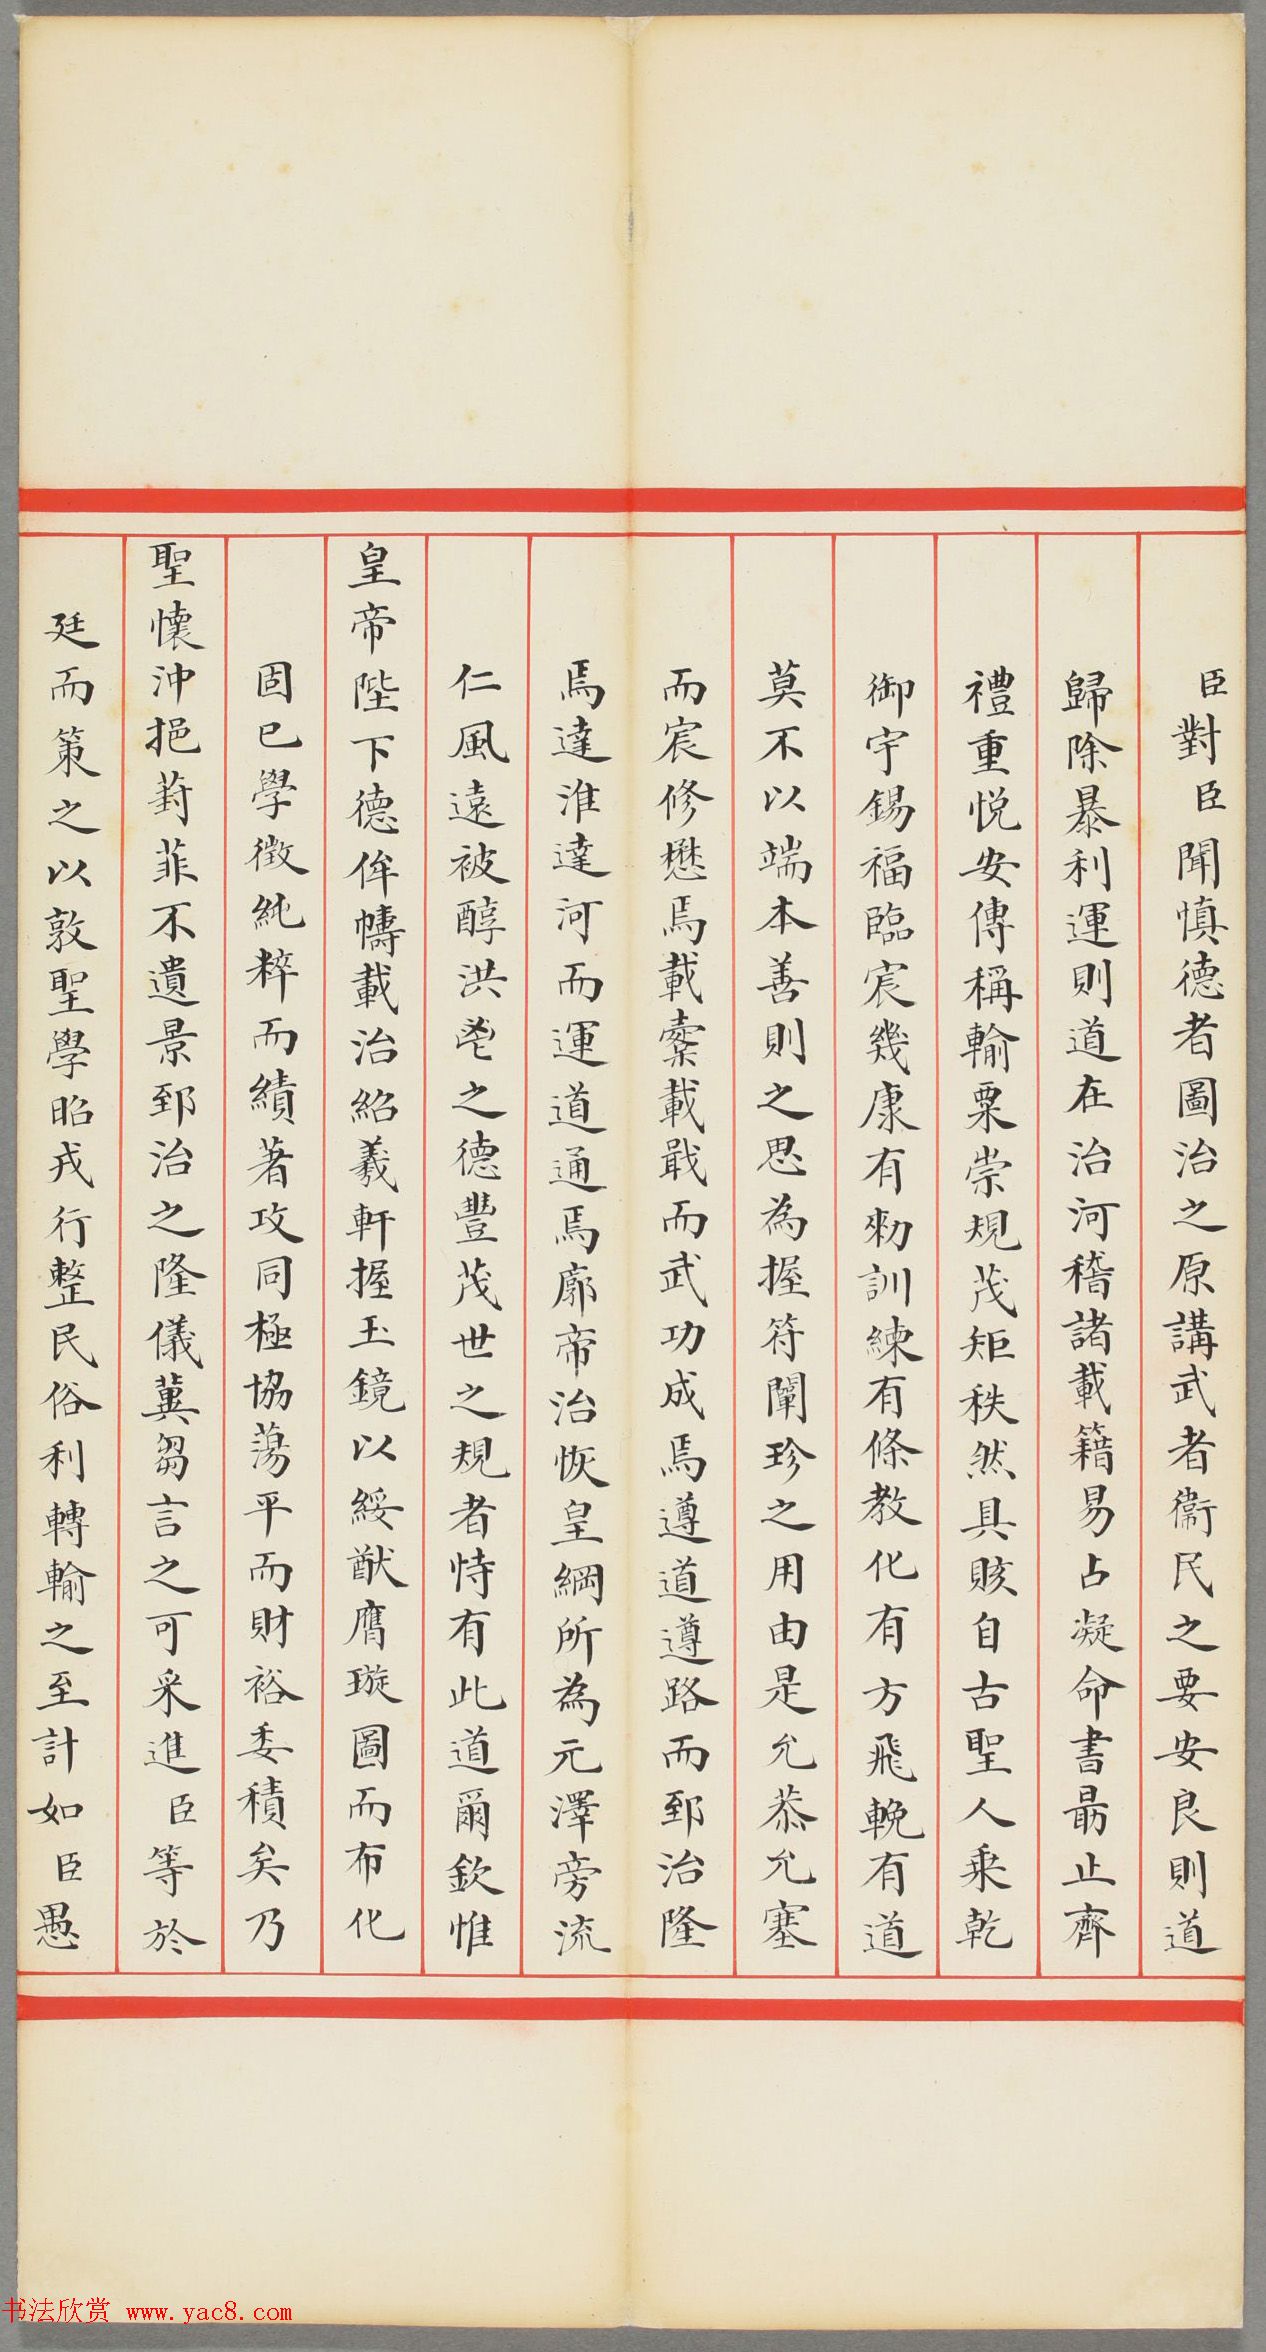 臣對臣聞慎德者圖治之原講武者衞民之要安良則道
歸除暴利運則道在治河稽諸載籍易占凝命書朂止齊
禮重悅安傳稱輸粟崇規茂矩秩然具賅自古聖人乘乾
御宇錫福臨宸幾康有勑訓練有條教化有方飛輓有道
莫不以端本善則之思為握符闡珍之用由是允恭允塞
而宸修懋焉載櫜載戢而武功成焉遵道遵路而郅治隆
焉達淮達河而運道通焉廓帝治恢皇綱所為元澤旁流
仁風遠被醇洪鬯之德豐茂世之規者恃有此道爾欽惟
皇帝陛下德侔幬載治紹羲軒握玉鏡以綏猷膺璇圖而布化
固已學徵純粹而績著攻同極協蕩平而財裕委積矣乃
聖懷沖挹葑菲不遺景郅治之隆儀冀芻言之可采進臣等於
廷而策之以敦聖學昭戎行整民俗利轉輸之至計如臣愚
书法欣赏 www.yac8.com